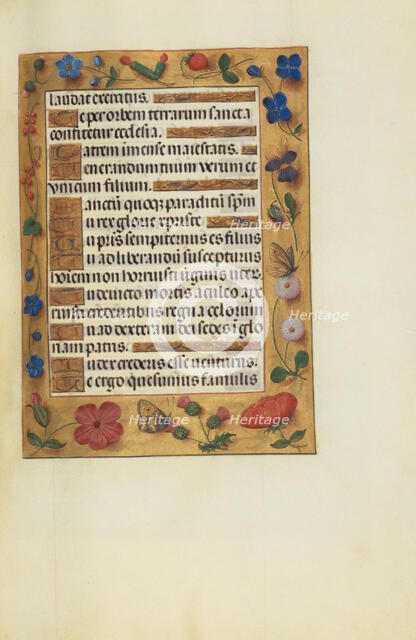 laudat exercitus.
Te per orbem terrarum sancta
confitetur ecclesia.
Patrem imense maiestatis.
Venerandum tuum verum et
unicum filium.
Sanctū quoqȝ paraclitū spm̄
Tu rex glorie xpriste.
Tu pr̄is sempiternus es filius
Tu ad liberandū suscepturus
hominem non horruisti ūginis uter.
Tu devicto mortis aculeo ape
ruisti credentibus regna celorum
Tu ad dexteram dei sedes ī glo
ria patris.
Iudex crederis esse venturus.
Te ergo quesumus famulis
Heritage
Heritage
Heritage
Heritage
Heritage